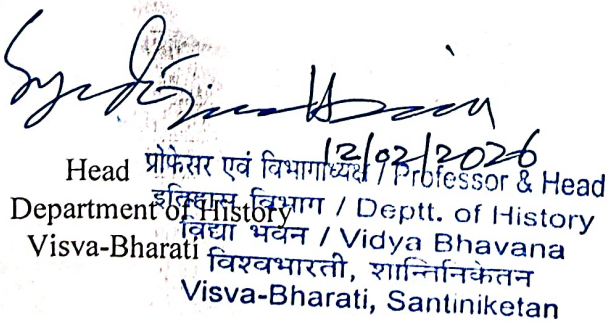 12/02/2026
Head
Department of History
Visva-Bharati
प्रोफेसर एवं विभागाध्यक्ष / Professor & Head
इतिहास विभाग / Deptt. of History
विद्या भवन / Vidya Bhavana
विश्वभारती, शान्तिनिकेतन
Visva-Bharati, Santiniketan